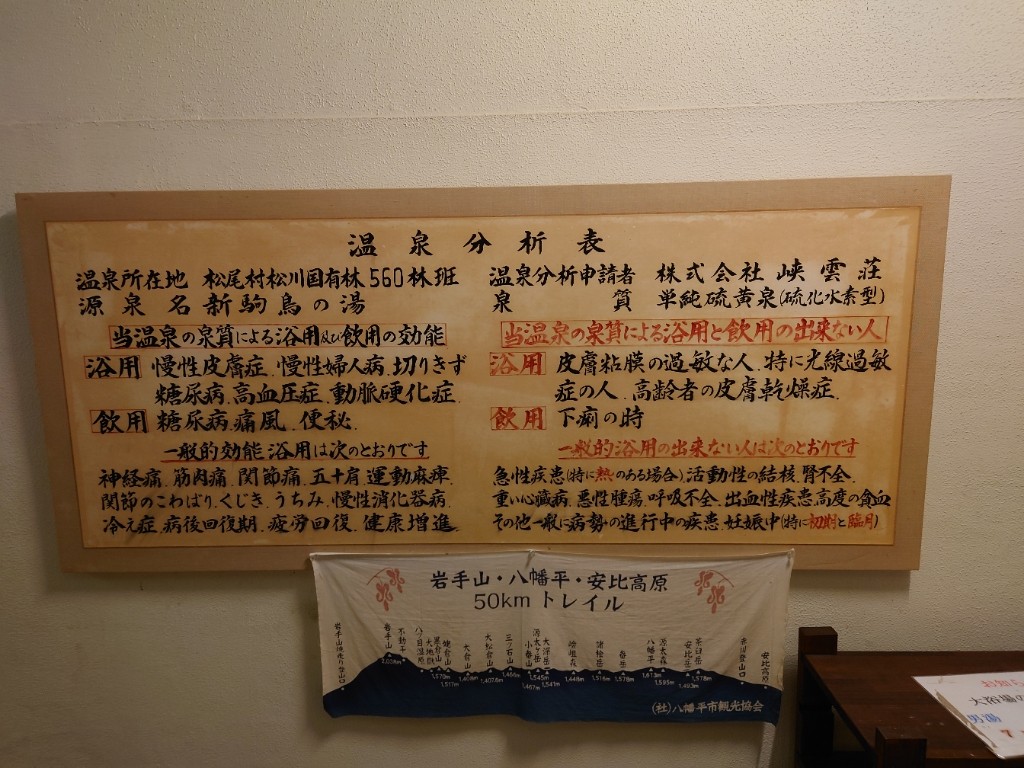 温泉分析表
温泉所在地 松尾村松川国有林560林班
源泉名 新駒鳥の湯
当温泉の泉質による浴用及び飲用の効能
浴用 慢性皮膚症、慢性婦人病、切りきず
糖尿病、高血圧症、動脈硬化症
飲用 糖尿病、痛風、便秘、
一般的効能 浴用は次のとおりです
神経痛、筋肉痛、関節痛、五十肩、運動麻痺、
関節のこわばり、くじき、うちみ、慢性消化器病、
冷え症、病後回復期、疲労回復、健康増進
温泉分析申請者 株式会社 峡雲荘
泉質 単純硫黄泉(硫化水素型)
当温泉の泉質による浴用と飲用の出来ない人
浴用 皮膚粘膜の過敏な人、特に光線過敏
症の人、高齢者の皮膚乾燥症、
飲用 下痢の時
一般的浴用の出来ない人は次のとおりです
急性疾患(特に熱のある場合)、活動性の結核、腎不全、
重い心臓病、悪性腫瘍、呼吸不全、出血性疾患、高度の貧血
その他一般に病勢の進行中の疾患、妊娠中(特に初期と臨月)
岩手山・八幡平・安比高原
50kmトレイル
岩手山
不動平
大地獄
黒倉山
大倉山
大松倉山
三ツ石山
小畚山
大深岳
嶮岨森
諸桧岳
畚岳
八幡平
源太森
安比岳
茶臼岳
安比高原
2,038m
1,570m
1,517m
1,408m
1,407.6m
1,466m
1,467m
1,545m
1,541m
1,448m
1,516m
1,578m
1,613m
1,595m
1,493m
1,578m
(社)八幡平市観光協会
大浴場の
男湯